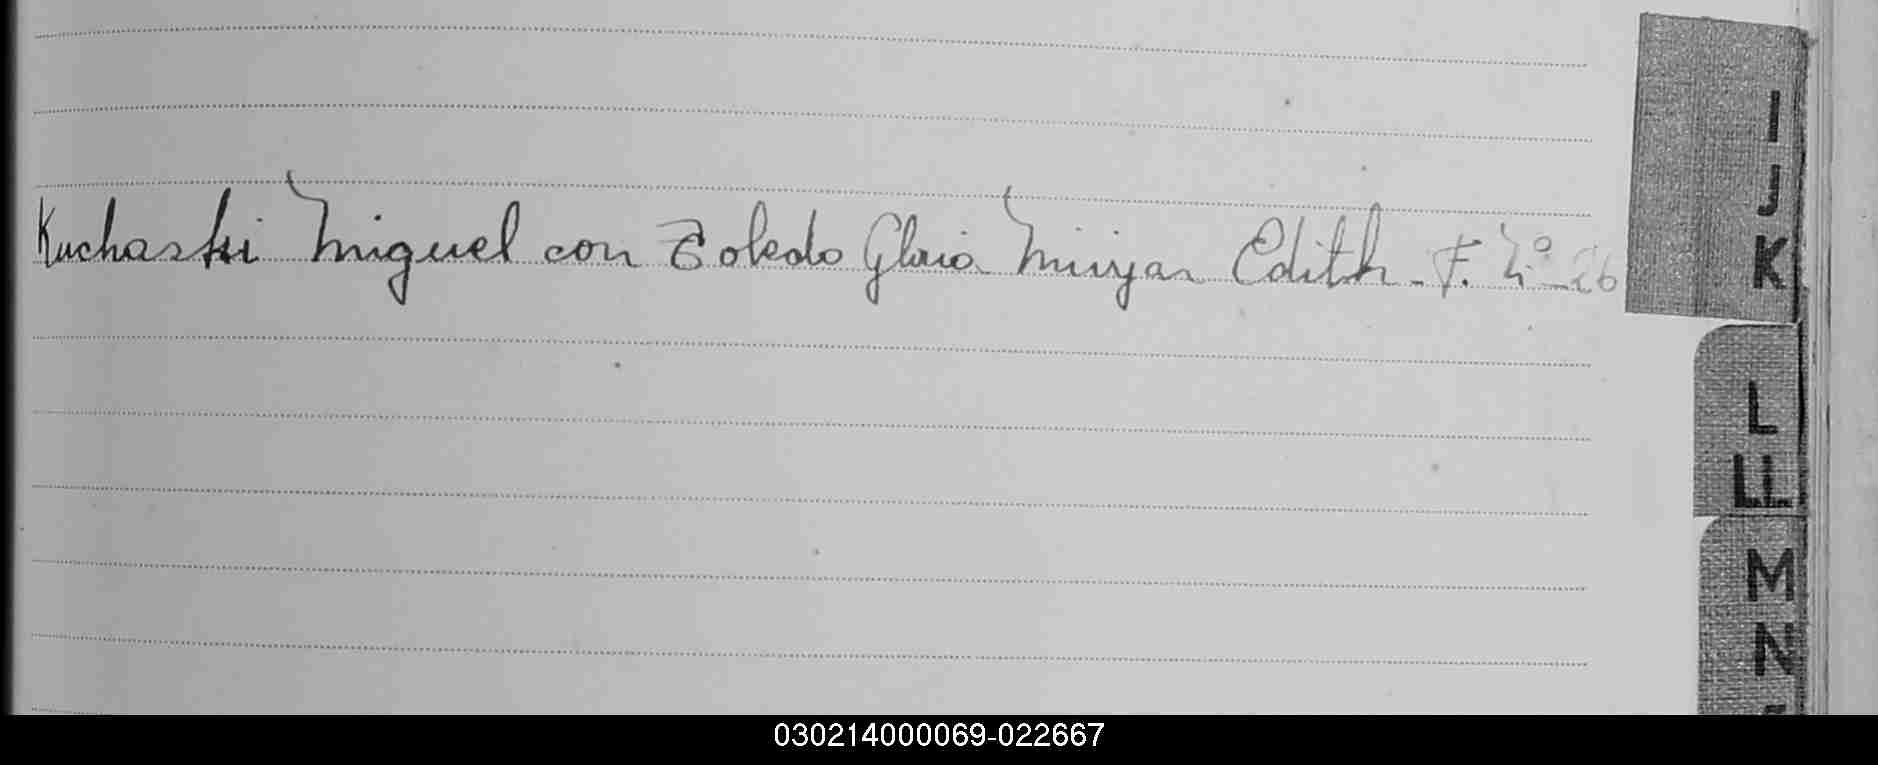 Kuchaski Miguel con Toledo Gloria Miryan Edith - F. Nº - 26
I
J
K
L
LL
M
N
030214000069-022667